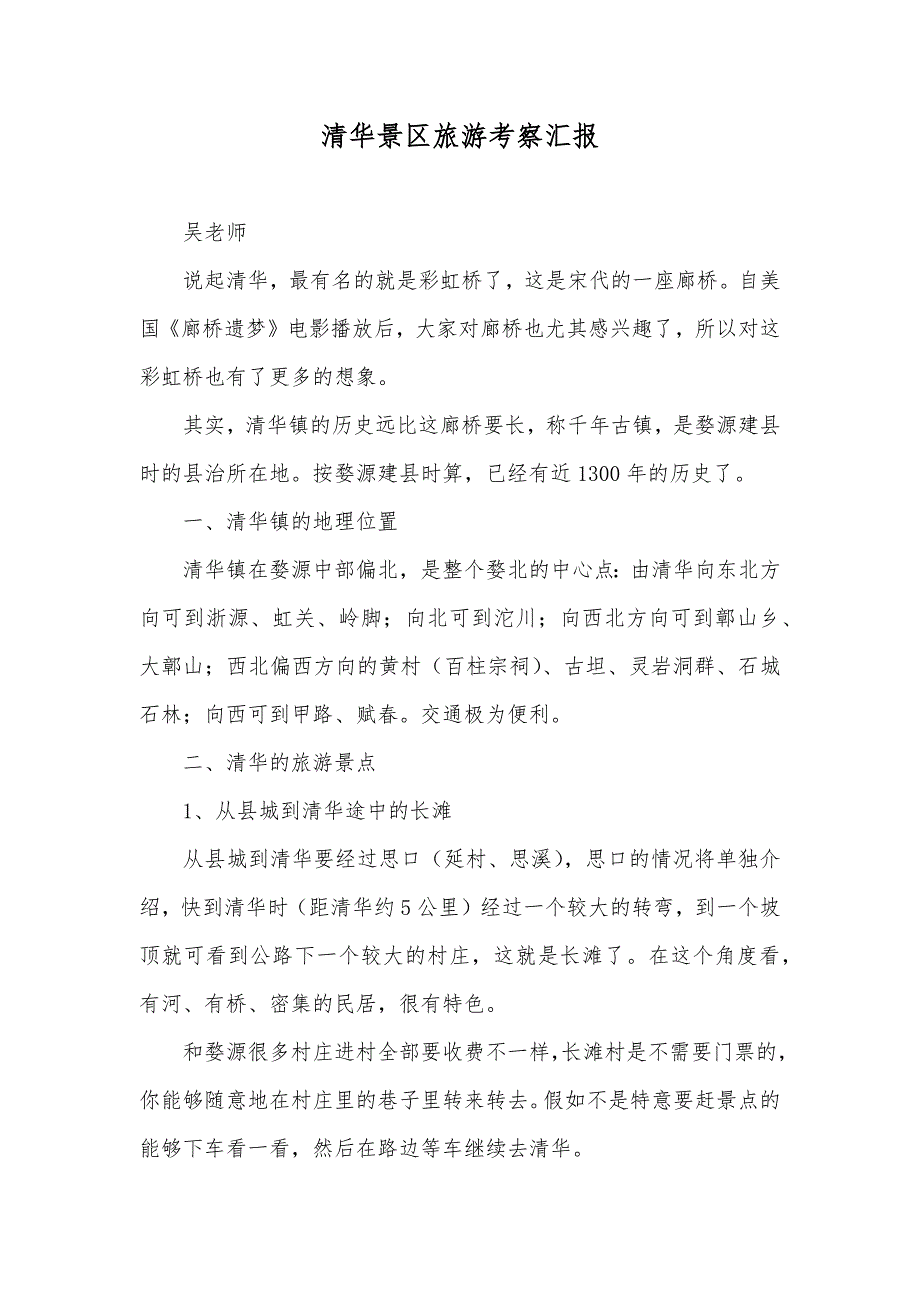 清华景区旅游考察汇报
吴老师
说起清华，最有名的就是彩虹桥了，这是宋代的一座廊桥。自美
国《廊桥遗梦》电影播放后，大家对廊桥也尤其感兴趣了，所以对这
彩虹桥也有了更多的想象。
其实，清华镇的历史远比这廊桥要长，称千年古镇，是婺源建县
时的县治所在地。按婺源建县时算，已经有近1300年的历史了。
一、清华镇的地理位置
清华镇在婺源中部偏北，是整个婺北的中心点：由清华向东北方
向可到浙源、虹关、岭脚；向北可到沱川；向西北方向可到鄣山乡、
大鄣山；西北偏西方向的黄村（百柱宗祠）、古坦、灵岩洞群、石城
石林；向西可到甲路、赋春。交通极为便利。
二、清华的旅游景点
1、从县城到清华途中的长滩
从县城到清华要经过思口（延村、思溪），思口的情况将单独介
绍，快到清华时（距清华约5公里）经过一个较大的转弯，到一个坡
顶就可看到公路下一个较大的村庄，这就是长滩了。在这个角度看，
有河、有桥、密集的民居，很有特色。
和婺源很多村庄进村全部要收费不一样，长滩村是不需要门票的，
你能够随意地在村庄里的巷子里转来转去。假如不是特意要赶景点的
能够下车看一看，然后在路边等车继续去清华。